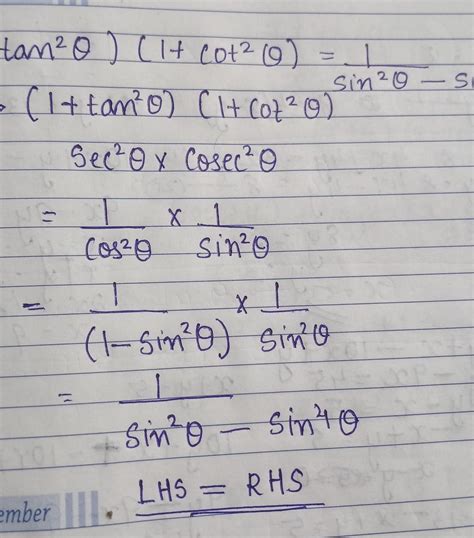 tan²θ) (1+ cot²θ) = 1/(sin²θ – s
(1+tan²θ) (1+cot²θ)
Sec²θ x Cosec²θ
= 1/Cos²θ x 1/Sin²θ
= 1/(1–Sin²θ) x 1/Sin²θ
= 1/(Sin²θ – Sin⁴θ)
LHS = RHS
ember